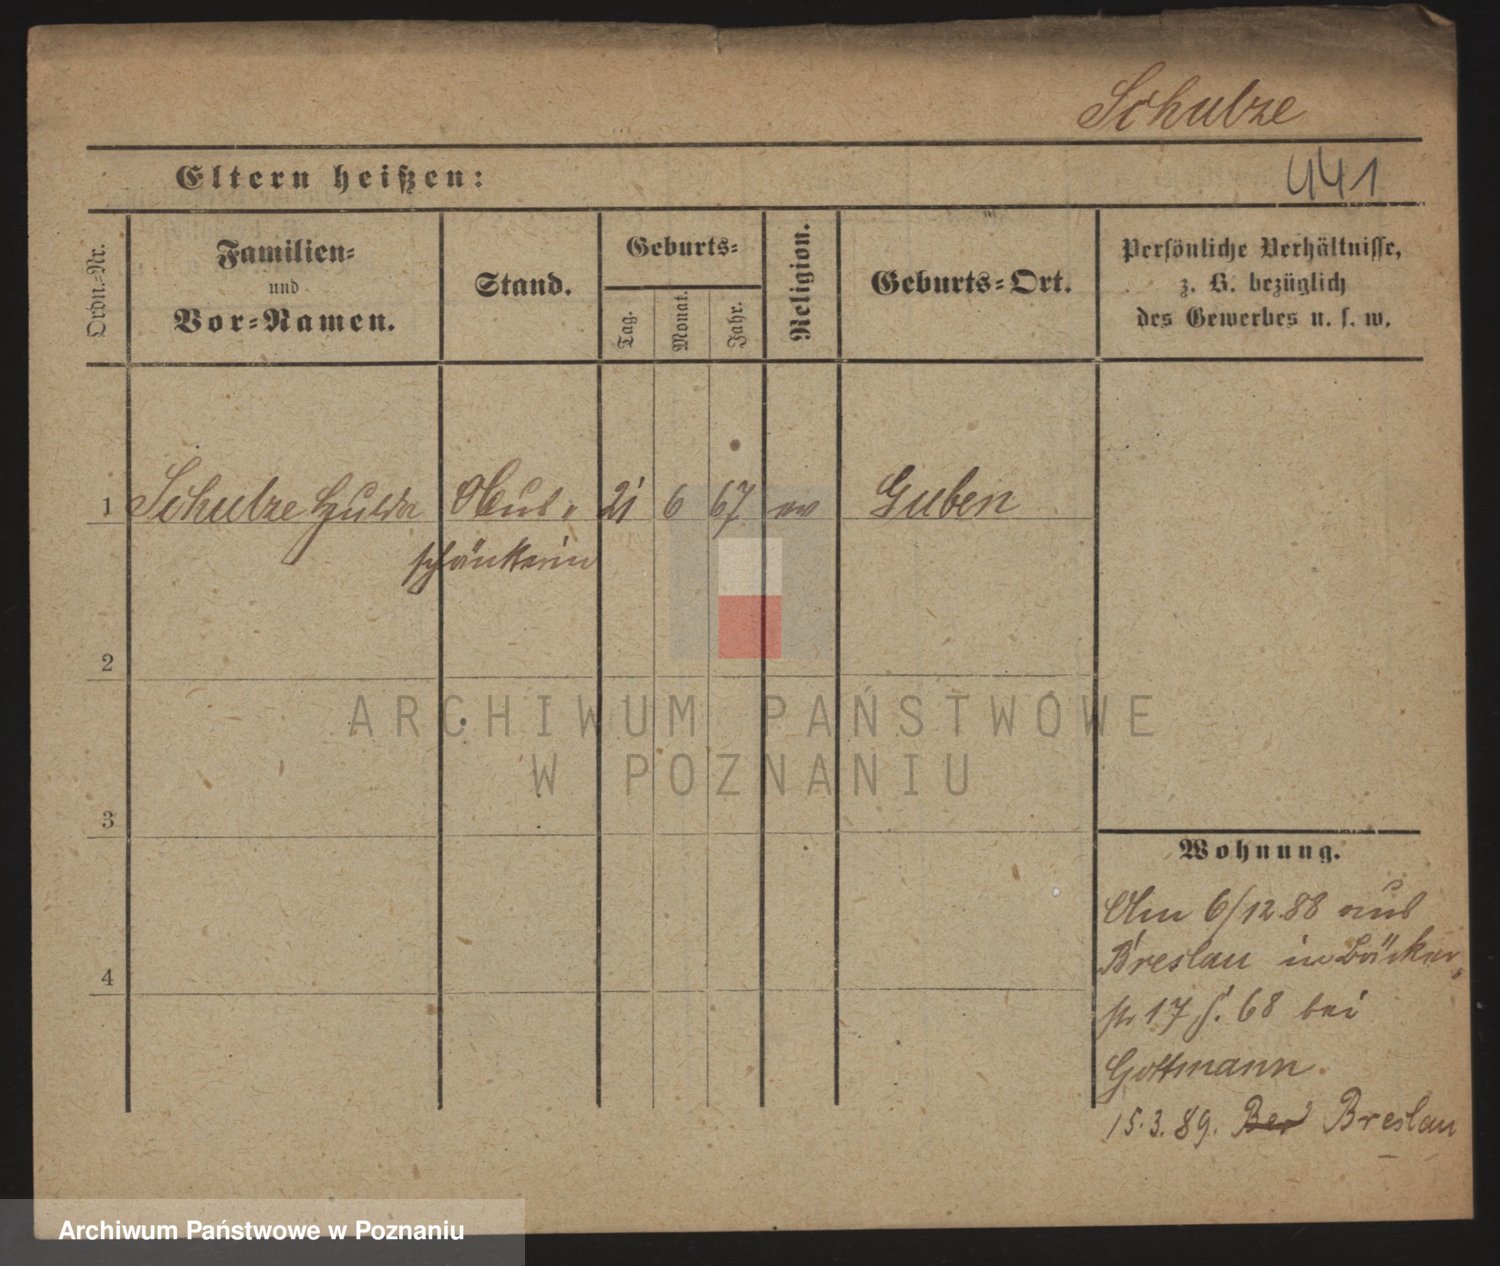 Schulze
441
Eltern heißen:
Ordn.-Nr.
Familien-
und
Vor-Namen.
Stand.
Geburts-
Tag.
Monat.
Jahr.
Religion.
Geburts-Ort.
Persönliche Verhältnisse,
z. B. bezüglich
des Gewerbes u. s. w.
1 Schulze Hulda 21 6 67 ev Guben
schänkerin
2
3
4
Wohnung.
Am 6/12.88 aus
Breslau in Bäcker-
str 17 J. 68 bei
Gottmann.
15.3.89. Ber Breslau
ARCHIWUM PAŃSTWOWE
W POZNANIU
Archiwum Państwowe w Poznaniu